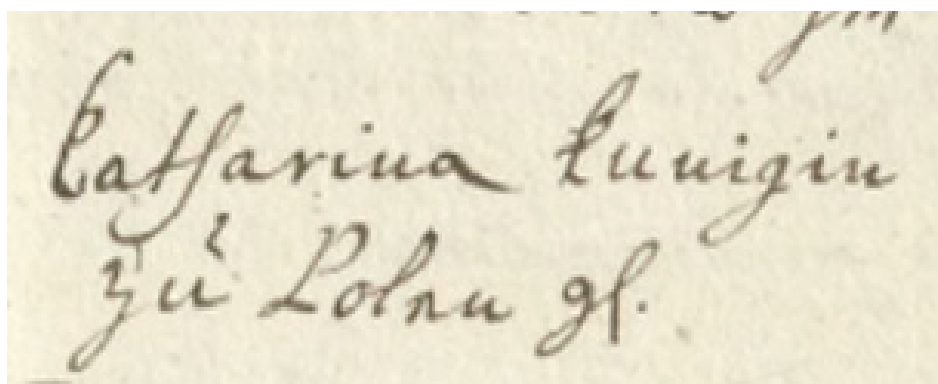 Catharina kunigin
zů Polen gl.